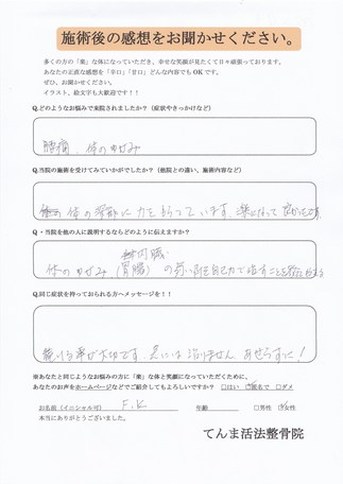 施術後の感想をお聞かせください。
多くの方の「楽」な体になっていただき、幸せな笑顔が見たくて日々頑張っております。
あなたの正直な感想を「辛口」「甘口」どんな内容でもOKです。
ぜひ、お聞かせください。
イラスト、絵文字も大歓迎です！！
Q.どのようなお悩みで来院されましたか？（症状やきっかけなど）
腰痛、体のゆがみ
Q.当院の施術を受けてみていかがでしたか？（他院との違い、施術内容など）
体の
力を
Q・当院を他の人に説明するならどのように伝えますか？
内臓
体のゆがみ（胃腸）の
自己力で治すこと
Q.同じ症状を持っておられる方へメッセージを！！
続ける事が大切です。急には治りません あせらずに！
※あなたと同じようなお悩みの方に「楽」な体と笑顔になっていただくために、
あなたのお声をホームページなどでご紹介してもよろしいですか？ □はい □匿名で □ダメ
お名前（イニシャル可） F.K 年齢 □男性 □女性
本当にありがとうございました。
てんま活法整骨院